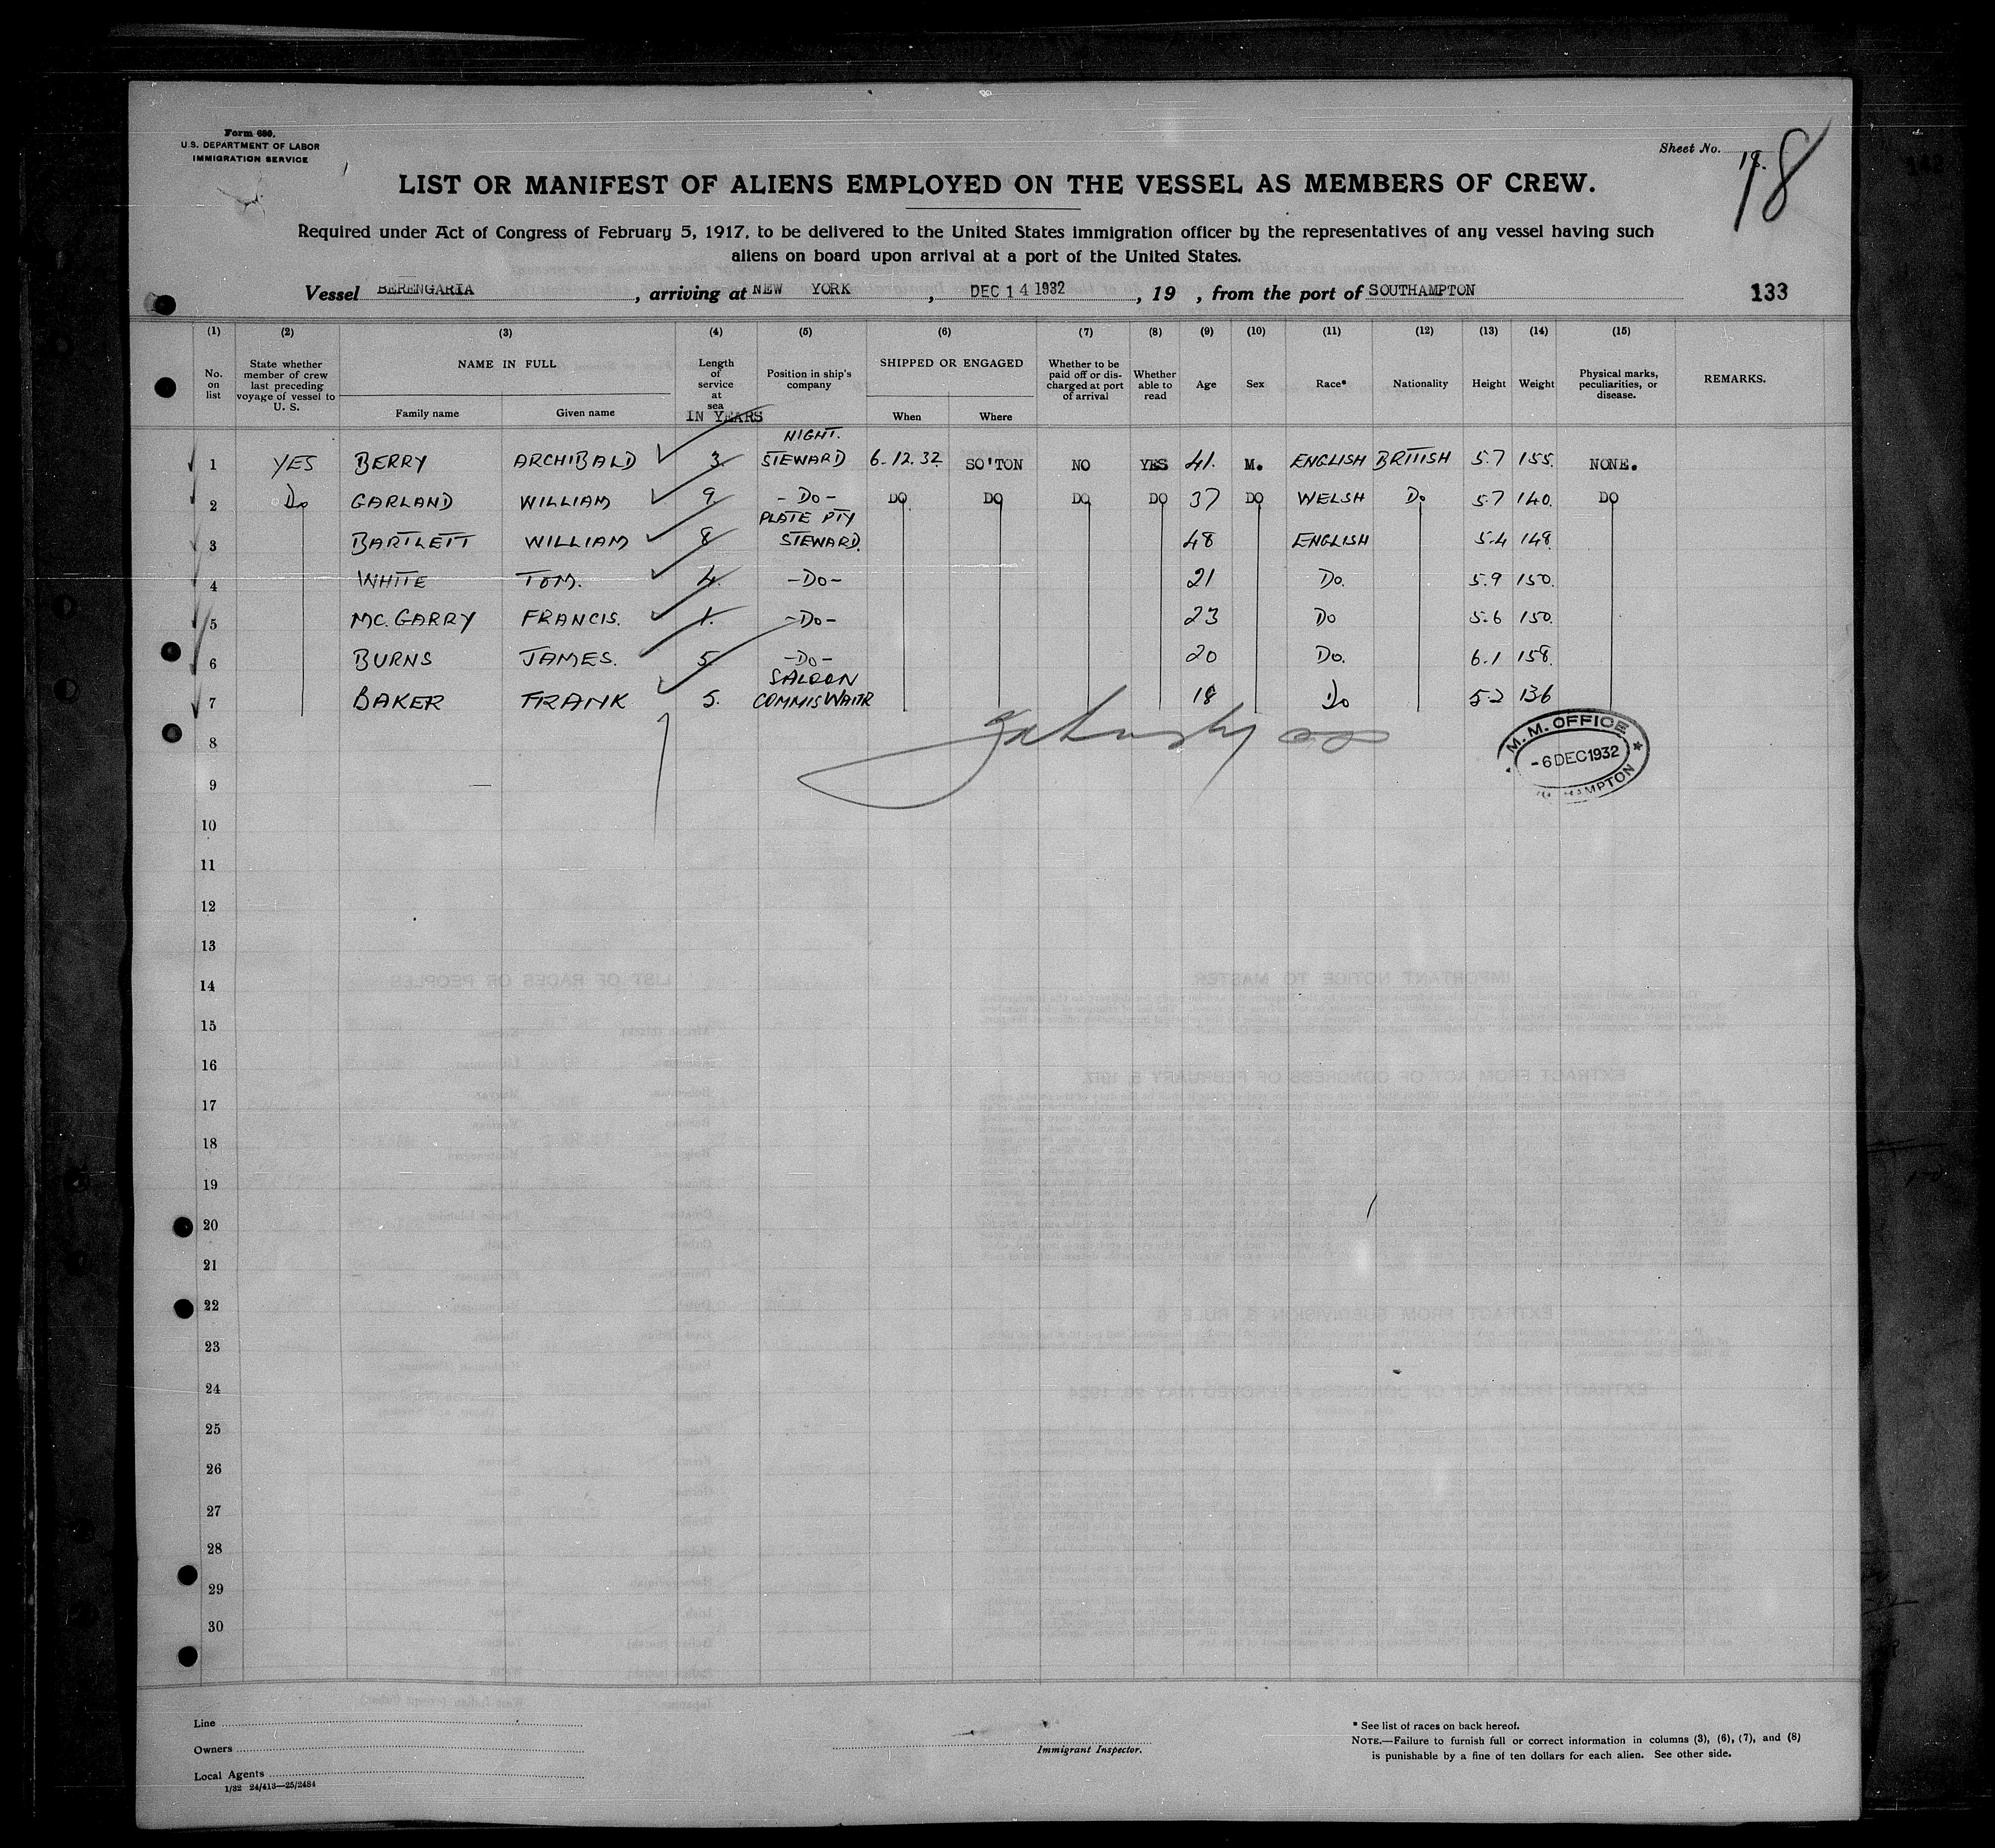 Form 680.
U.S. DEPARTMENT OF LABOR
IMMIGRATION SERVICE
Sheet No. 18.
18
LIST OR MANIFEST OF ALIENS EMPLOYED ON THE VESSEL AS MEMBERS OF CREW.
Required under Act of Congress of February 5, 1917, to be delivered to the United States immigration officer by the representatives of any vessel having such
aliens on board upon arrival at a port of the United States.
Vessel BERENGARIA, arriving at NEW YORK, DEC 14 1932, 19 , from the port of SOUTHAMPTON 133
(1) (2) (3) (4) (5) (6) (7) (8) (9) (10) (11) (12) (13) (14) (15)
No. on list State whether member of crew last preceding voyage of vessel to U. S. NAME IN FULL Family name Given name Length of service at sea IN YEARS Position in ship's company SHIPPED OR ENGAGED When Where Whether to be paid off or discharged at port of arrival Whether able to read Age Sex Race* Nationality Height Weight Physical marks, peculiarities, or disease. REMARKS.
1 YES BERRY ARCHIBALD 3. NIGHT. STEWARD 6.12.32 SO'TON NO YES 41. M. ENGLISH BRITISH 5.7 155. NONE.
2 Do GARLAND WILLIAM 9 -Do- DO DO DO DO 37 DO WELSH Do 5.7 140. DO
3 BARTLETT WILLIAM 8 PLATE PTY STEWARD. 48 ENGLISH 5.4 148.
4 WHITE TOM. 4. -Do- 21 Do. 5.9 150.
5 MC.GARRY FRANCIS. 1. -Do- 23 Do 5.6 150.
6 BURNS JAMES. 5 -Do- 20 Do. 6.1 158.
7 BAKER FRANK 5. SALOON COMMIS WAITR 18 Do 5.2 136
8
M.M. OFFICE
-6 DEC 1932
9
10
11
12
13
14
15
16
17
18
19
20
21
22
23
24
25
26
27
28
29
30
Line
Owners
Local Agents
1/32 24/413—25/2484
Immigrant Inspector.
* See list of races on back hereof.
NOTE.—Failure to furnish full or correct information in columns (3), (6), (7), and (8)
is punishable by a fine of ten dollars for each alien. See other side.